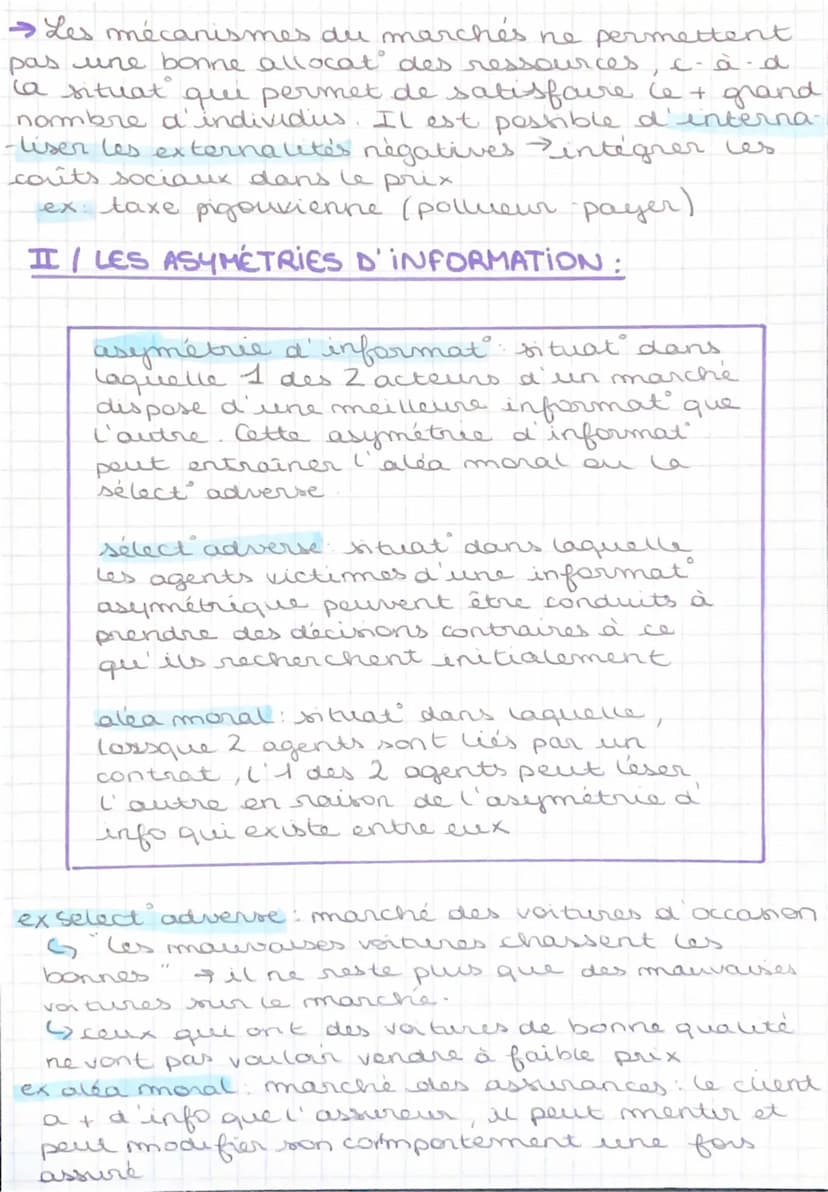 → Les mécanismes du marchés ne permettent
pas une bonne allocat° des ressources, c-à-d
la situat° qui permet de satisfaire le + grand
nombre d'individus. Il est possible d'interna-
-liser les externalités négatives → intégrer les
coûts sociaux dans le prix
ex: taxe pigouvienne (pollueur-payer)
II / LES ASYMÉTRIES D'INFORMATION :
asymétrie d'informat° : situat° dans
laquelle 1 des 2 acteurs d'un marché
dispose d'une meilleure informat° que
l'autre. Cette asymétrie d'informat°
peut entraîner l'aléa moral ou la
sélect° adverse.
sélect° adverse : situat° dans laquelle
les agents victimes d'une informat°
asymétrique peuvent être conduits à
prendre des décisions contraires à ce
qu'ils recherchent initialement
aléa moral : situat° dans laquelle,
lorsque 2 agents sont liés par un
contrat, l'1 des 2 agents peut léser
l'autre en raison de l'asymétrie d'
info qui existe entre eux
ex select° adverse : marché des voitures d'occasion
↳ "les mauvaises voitures chassent les
bonnes" → il ne reste plus que des mauvaises
voitures sur le marché.
↳ ceux qui ont des voitures de bonne qualité
ne vont pas vouloir vendre à faible prix
ex aléa moral : marché des assurances : le client
a + d'info que l'assureur, il peut mentir et
peut modifier son comportement une fois
assuré